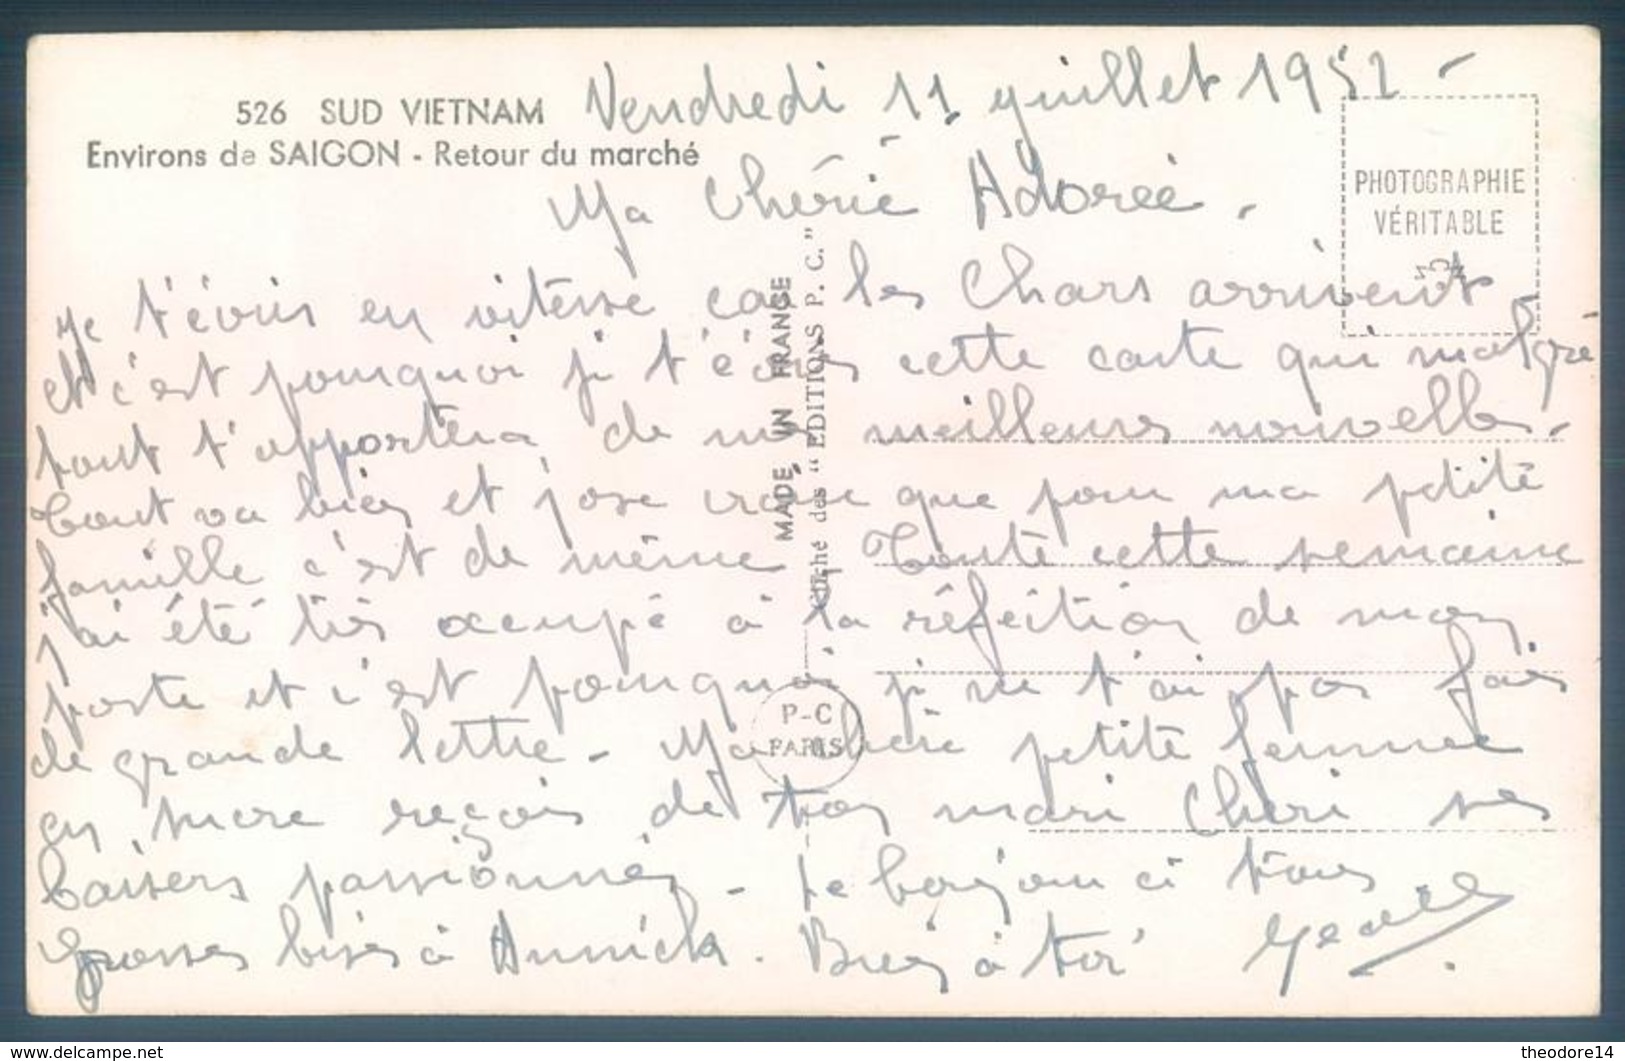 526 SUD VIETNAM
Environs de SAIGON - Retour du marché
Vendredi 11 juillet 1952 -
PHOTOGRAPHIE
VÉRITABLE
Ma Chérie Adorée.
Je t'écris en vitesse car les Chars arrivent
et c'est pourquoi je t'écris cette carte qui malgré
tout t'apportera de mes meilleures nouvelles.
Tout va bien et j'ose croire que pour ma petite
famille c'est de même. Toute cette semaine
j'ai été très occupé à la réfection de mon
poste et c'est pourquoi je ne t'ai pas fais
de grande lettre - Ma chérie petite femme
encore reçois de ton mari Chéri ses
baisers passionnés - le bonjour à tous
Grosses bises à Annick. Bien à toi
MADE IN FRANCE
Cliché des "EDITIONS P. C."
P-C
PARIS
www.delcampe.net
theodore14